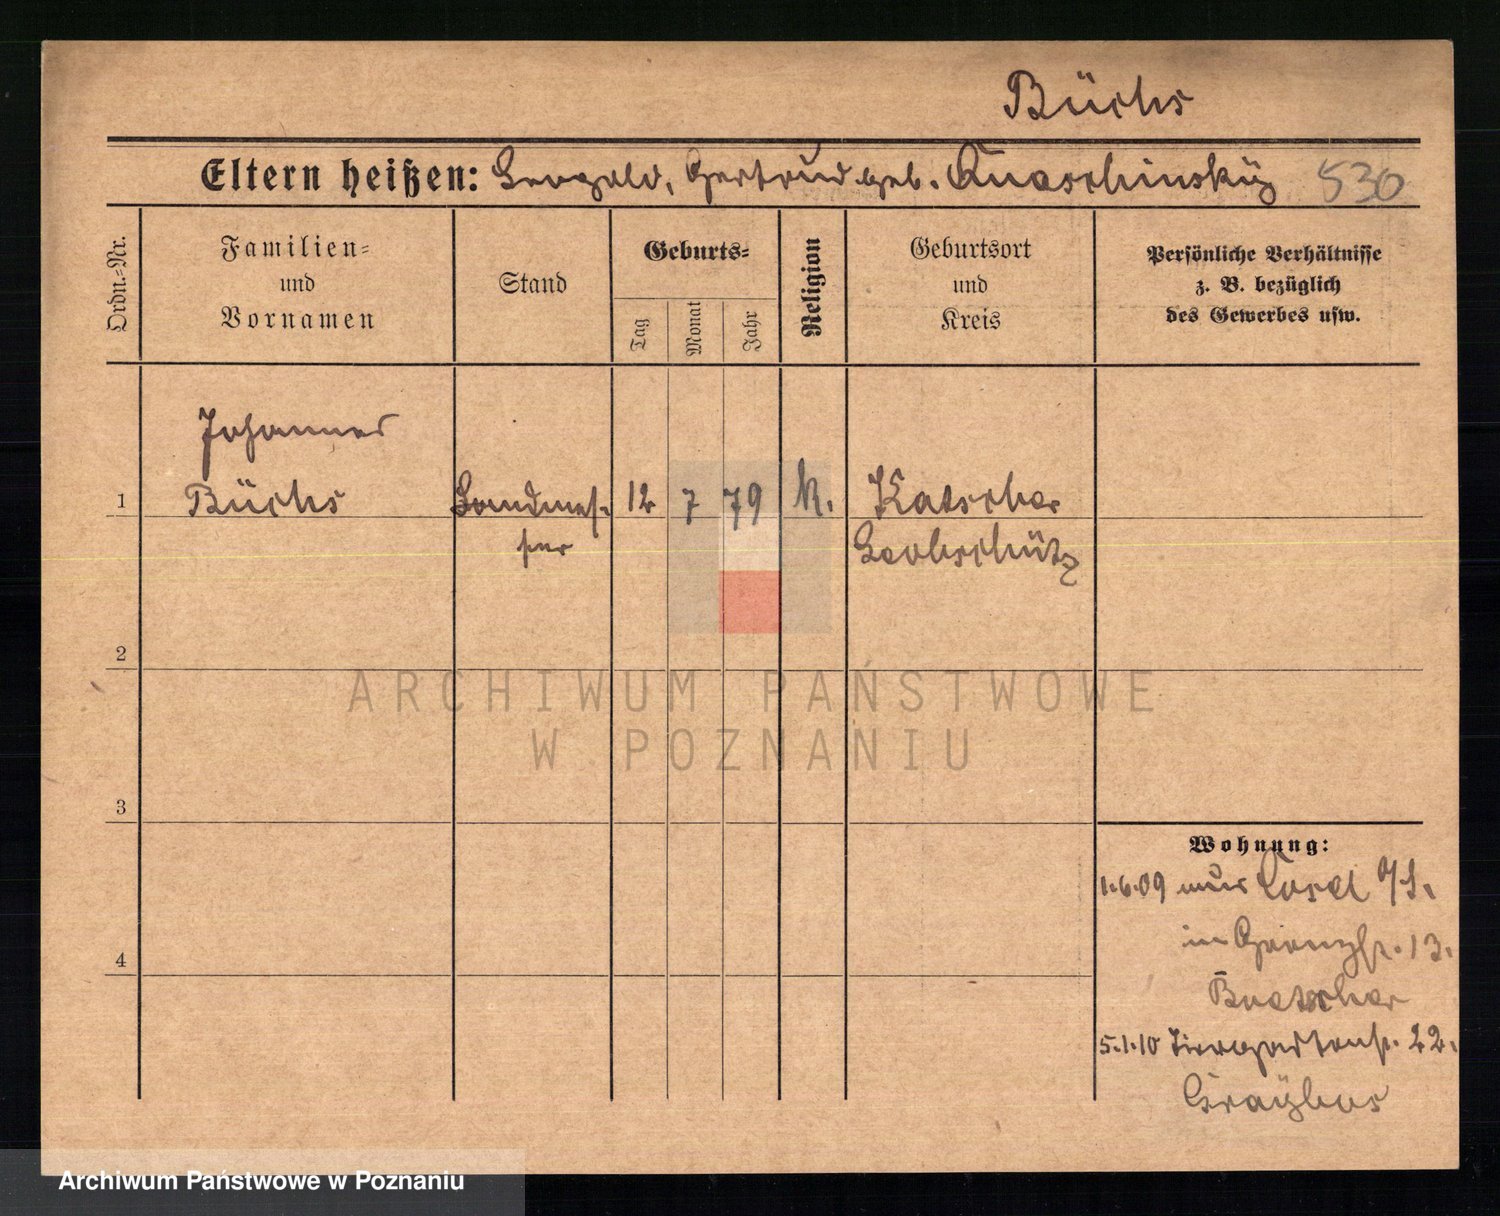 Büchs
Eltern heißen: Leopold, Gertrud geb. Quaschinsky 530
Ordn.-Nr.
Familien-
und
Vornamen
Stand
Geburts-
Tag
Monat
Jahr
Religion
Geburtsort
und
Kreis
Persönliche Verhältnisse
z. B. bezüglich
des Gewerbes usw.
Johannes
1 Büchs Landmes- 12 7 79 k. Katscher
ser Leobschütz
2
ARCHIWUM PAŃSTWOWE
W POZNANIU
3
Wohnung:
1.6.09 aus Cosel O/S.
in Grenzstr. 13.
4
5.1.10 Tiergartenstr. 22.
Archiwum Państwowe w Poznaniu